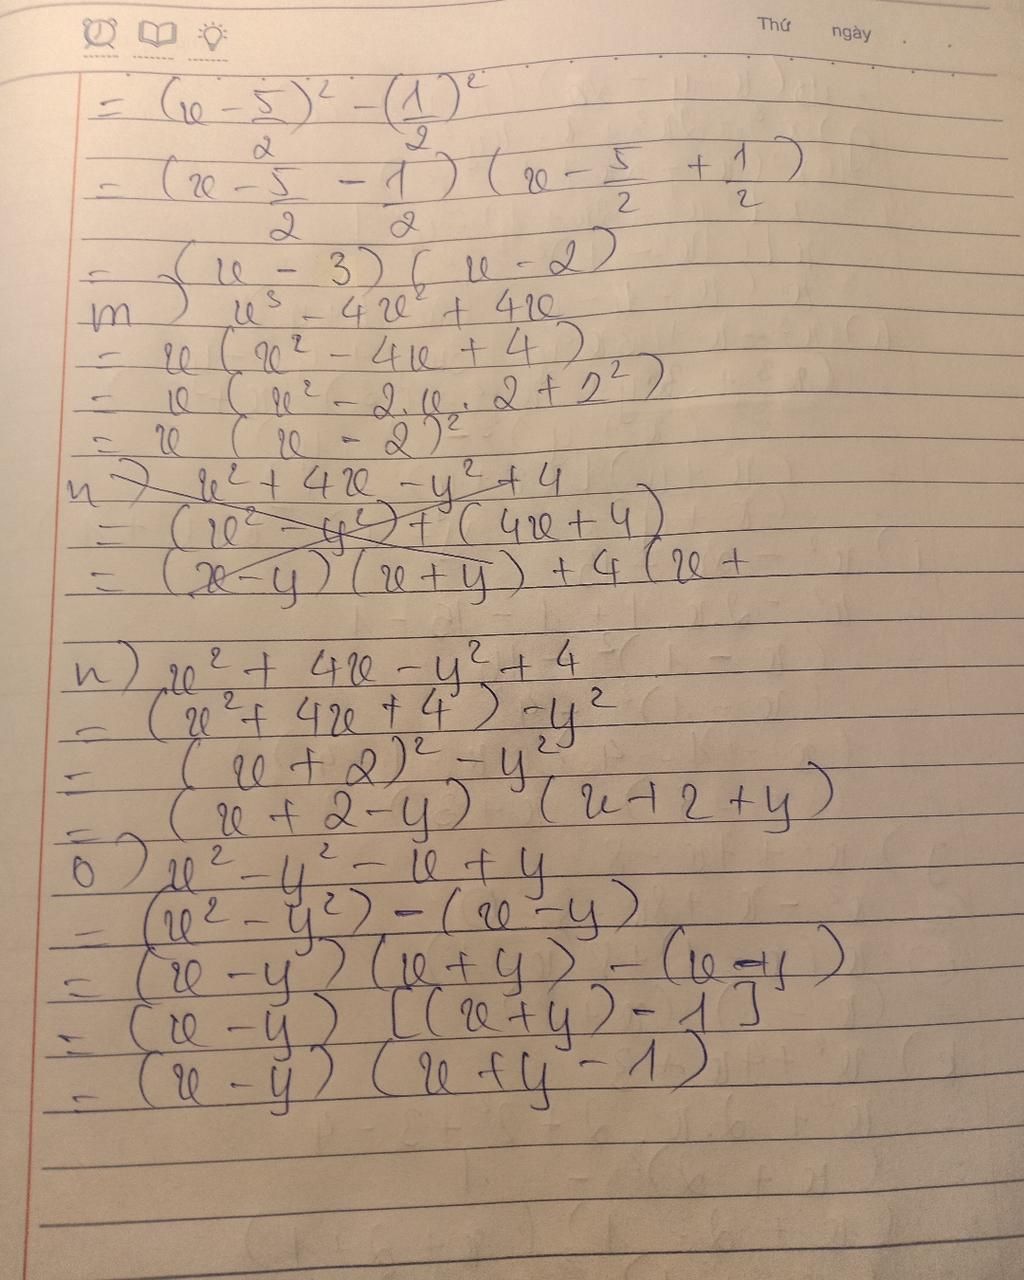 Thứ ngày . .
= (x - 5/2)² - (1/2)²
= (x - 5/2 - 1/2) (x - 5/2 + 1/2)
= (x - 3) (x - 2)
m) x³ - 4x² + 4x
= x (x² - 4x + 4)
= x (x² - 2.x.2 + 2²)
= x (x - 2)²
n) x² + 4x - y² + 4
= (x² - y²) + (4x + 4)
= (x - y) (x + y) + 4 (x +
n) x² + 4x - y² + 4
= (x² + 4x + 4) - y²
= (x + 2)² - y²
= (x + 2 - y) (x + 2 + y)
o) x² - y² - x + y
= (x² - y²) - (x - y)
= (x - y) (x + y) - (x - y)
= (x - y) [(x + y) - 1]
= (x - y) (x + y - 1)